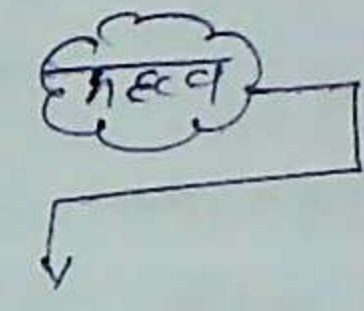 महत्व